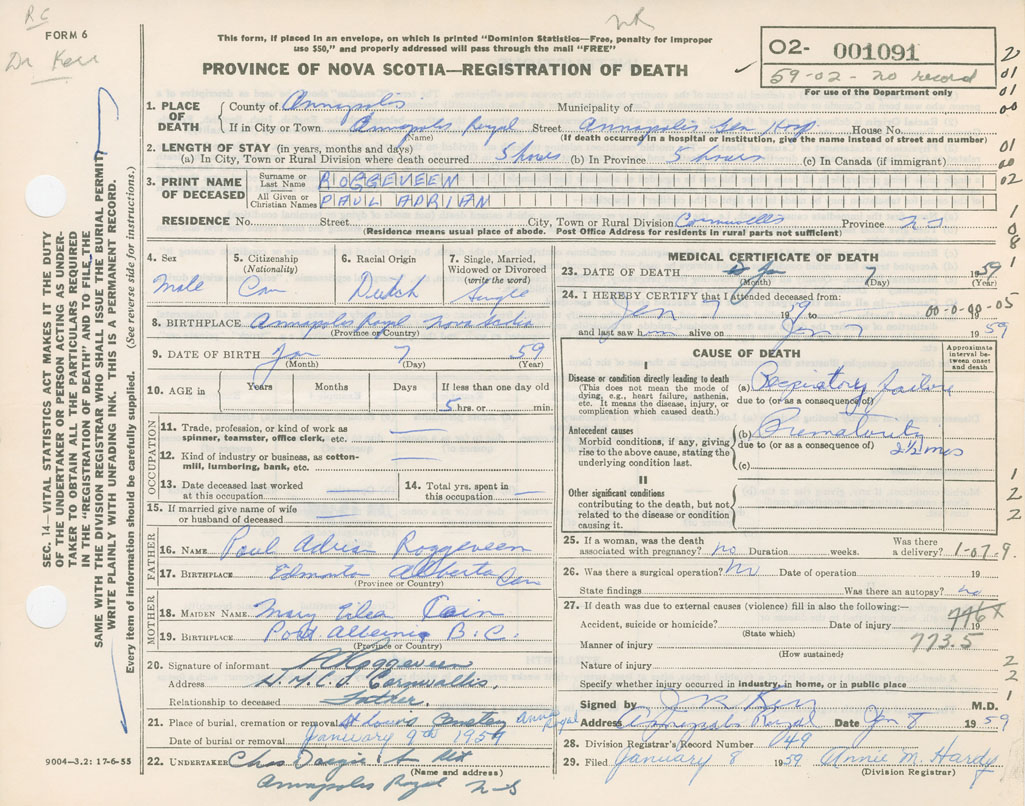 RC
FORM 6
Dr Kerr
NR
This form, if placed in an envelope, on which is printed "Dominion Statistics—Free, penalty for improper
use $50," and properly addressed will pass through the mail "FREE"
PROVINCE OF NOVA SCOTIA—REGISTRATION OF DEATH
02- 001091
59-02-no record
For use of the Department only
SEC. 14—VITAL STATISTICS ACT MAKES IT THE DUTY
OF THE UNDERTAKER OR PERSON ACTING AS UNDER-
TAKER TO OBTAIN ALL THE PARTICULARS REQUIRED
IN THE "REGISTRATION OF DEATH" AND TO FILE THE
SAME WITH THE DIVISION REGISTRAR WHO SHALL ISSUE THE BURIAL PERMIT
WRITE PLAINLY WITH UNFADING INK. THIS IS A PERMANENT RECORD.
Every item of information should be carefully supplied. (See reverse side for instructions.)
1. PLACE OF DEATH
County of Annapolis Municipality of
If in City or Town Annapolis Royal Street Annapolis Gen Hosp House No.
(Name) (If death occurred in a hospital or institution, give the name instead of street and number)
2. LENGTH OF STAY (in years, months and days)
(a) In City, Town or Rural Division where death occurred 5 hours (b) In Province 5 hours (c) In Canada (if immigrant)
3. PRINT NAME OF DECEASED
Surname or Last Name ROGGEVEEN
All Given or Christian Names PAUL ADRIAN
RESIDENCE No. Street City, Town or Rural Division Cornwallis Province N.S
(Residence means usual place of abode. Post Office Address for residents in rural parts not sufficient)
4. Sex Male
5. Citizenship (Nationality) Can
6. Racial Origin Dutch
7. Single, Married, Widowed or Divorced (write the word) Single
8. BIRTHPLACE Annapolis Royal Nova Scotia
(Province or Country)
9. DATE OF BIRTH Jan 7 59
(Month) (Day) (Year)
10. AGE in Years Months Days If less than one day old
5 hrs. or min.
OCCUPATION
11. Trade, profession, or kind of work as
spinner, teamster, office clerk, etc. —
12. Kind of industry or business, as cotton-
mill, lumbering, bank, etc. —
13. Date deceased last worked
at this occupation —
14. Total yrs. spent in
this occupation —
15. If married give name of wife
or husband of deceased —
FATHER
16. NAME Paul Adrian Roggeveen
17. BIRTHPLACE Edmonton Alberta Can
(Province or Country)
MOTHER
18. MAIDEN NAME Mary Cain
19. BIRTHPLACE Port Alberni B.C.
(Province or Country)
20. Signature of informant Roggeveen
Address H.M.C.S Cornwallis,
Relationship to deceased Father.
21. Place of burial, cremation or removal St Louis Cemetery Anna Royal
Date of burial or removal January 9th 1959
22. UNDERTAKER Chas
(Name and address)
Annapolis Royal N-S
9004—3.2: 17-6-55
MEDICAL CERTIFICATE OF DEATH
23. DATE OF DEATH Jan 7 1959
(Month) (Day) (Year)
24. I HEREBY CERTIFY that I attended deceased from:
Jan 7 19 to 00-0-00-05
and last saw him alive on Jan 7 1959
CAUSE OF DEATH
Approximate interval be-tween onset and death
I
Disease or condition directly leading to death
(This does not mean the mode of
dying, e.g., heart failure, asthenia,
etc. It means the disease, injury, or
complication which caused death.)
(a) Respiratory failure
due to (or as a consequence of)
Antecedent causes
Morbid conditions, if any, giving
rise to the above cause, stating the
underlying condition last.
(b) Prematurity
due to (or as a consequence of) 2½ mos
(c)
II
Other significant conditions
contributing to the death, but not
related to the disease or condition
causing it.
25. If a woman, was the death
associated with pregnancy? no Duration weeks. Was there
a delivery? 1-07-9.
26. Was there a surgical operation? No Date of operation 19
State findings Was there an autopsy? no
27. If death was due to external causes (violence) fill in also the following:—
Accident, suicide or homicide? Date of injury 19
(State which)
776X
Manner of injury 773.5
(How sustained)
Nature of injury
Specify whether injury occurred in industry, in home, or in public place
Signed by J R Kerr M.D.
Address Annapolis Royal Date Jan 8 1959
28. Division Registrar's Record Number 49
29. Filed January 8 1959 Annie M. Hardy
(Division Registrar)